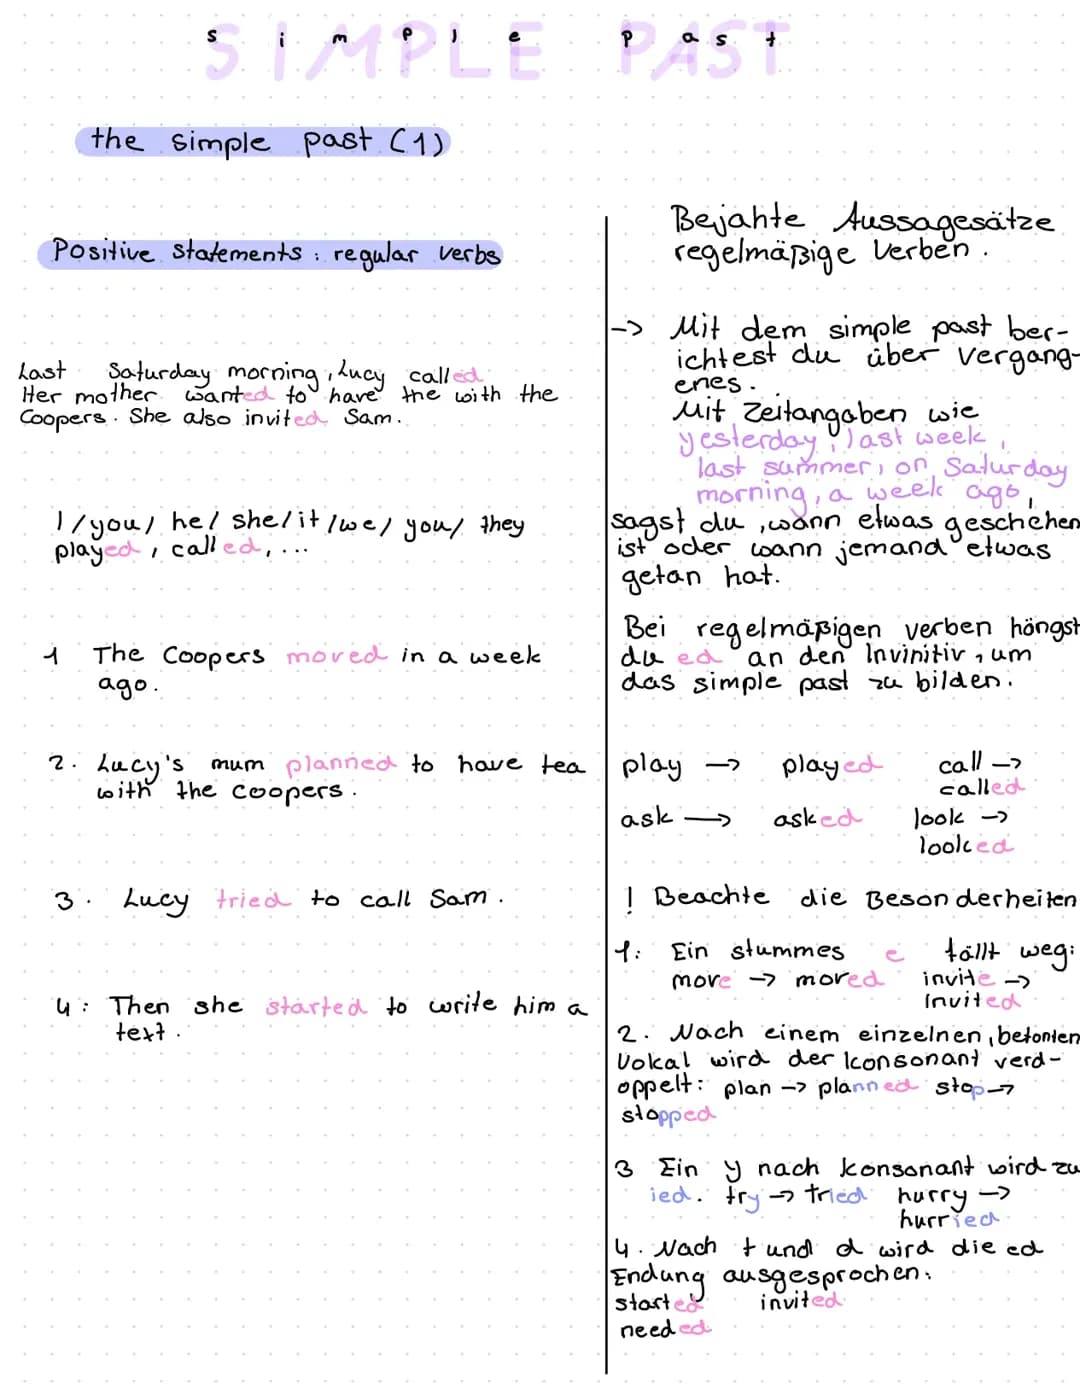 SIMPLE PAST
simple past
the simple past (1)
Positive statements : regular verbs
Last Saturday morning, Lucy called
Her mother wanted to have the with the
Coopers. She also invited Sam.
I/you/ he/ she/it /we/ you/ they
played, called, ...
1 The Coopers moved in a week
ago.
2. Lucy's mum planned to have tea
with the Coopers.
3. Lucy tried to call Sam.
4: Then she started to write him a
text.
Bejahte Aussagesätze
regelmäßige Verben.
-> Mit dem simple past ber-
ichtest du über vergang-
enes.
Mit Zeitangaben wie
yesterday, last week,
last summer, on Saturday
morning, a week ago,
sagst du, wann etwas geschehen
ist oder wann jemand etwas
getan hat.
Bei regelmäßigen verben hängst
du ed an den Invinitiv, um
das simple past zu bilden.
play -> played call ->
called
ask -> asked look ->
looked
! Beachte die Besonderheiten
1: Ein stummes e fällt weg:
more -> mored invite ->
Invited
2. Nach einem einzelnen, betonten
Vokal wird der Konsonant verd-
oppelt: plan -> planned stop ->
stopped
3 Ein y nach Konsonant wird zu
ied. try -> tried hurry ->
hurried
4. Nach t und d wird die ed
Endung ausgesprochen.
started invited
needed